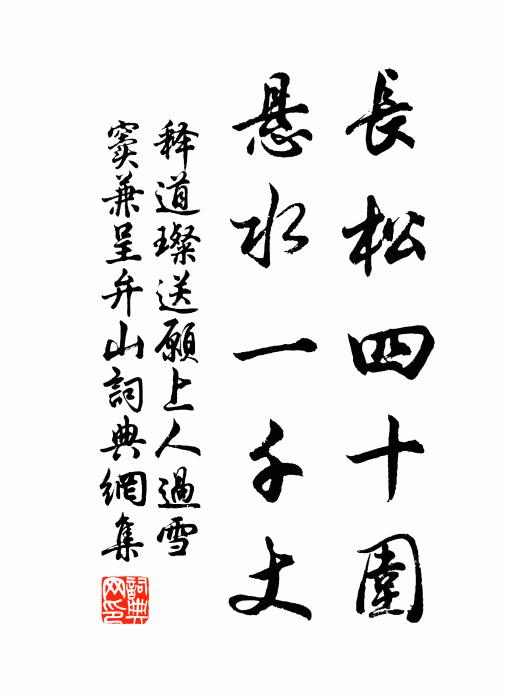 長松四十圍
悬水一千丈
释道璨送願上人過雪
窦兼呈弁山詞典網集
詞典